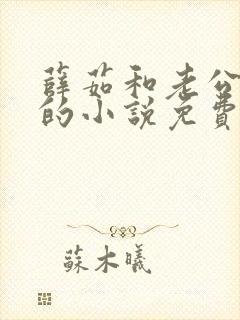 薛茹和老公
的小說免費
蘇木曦